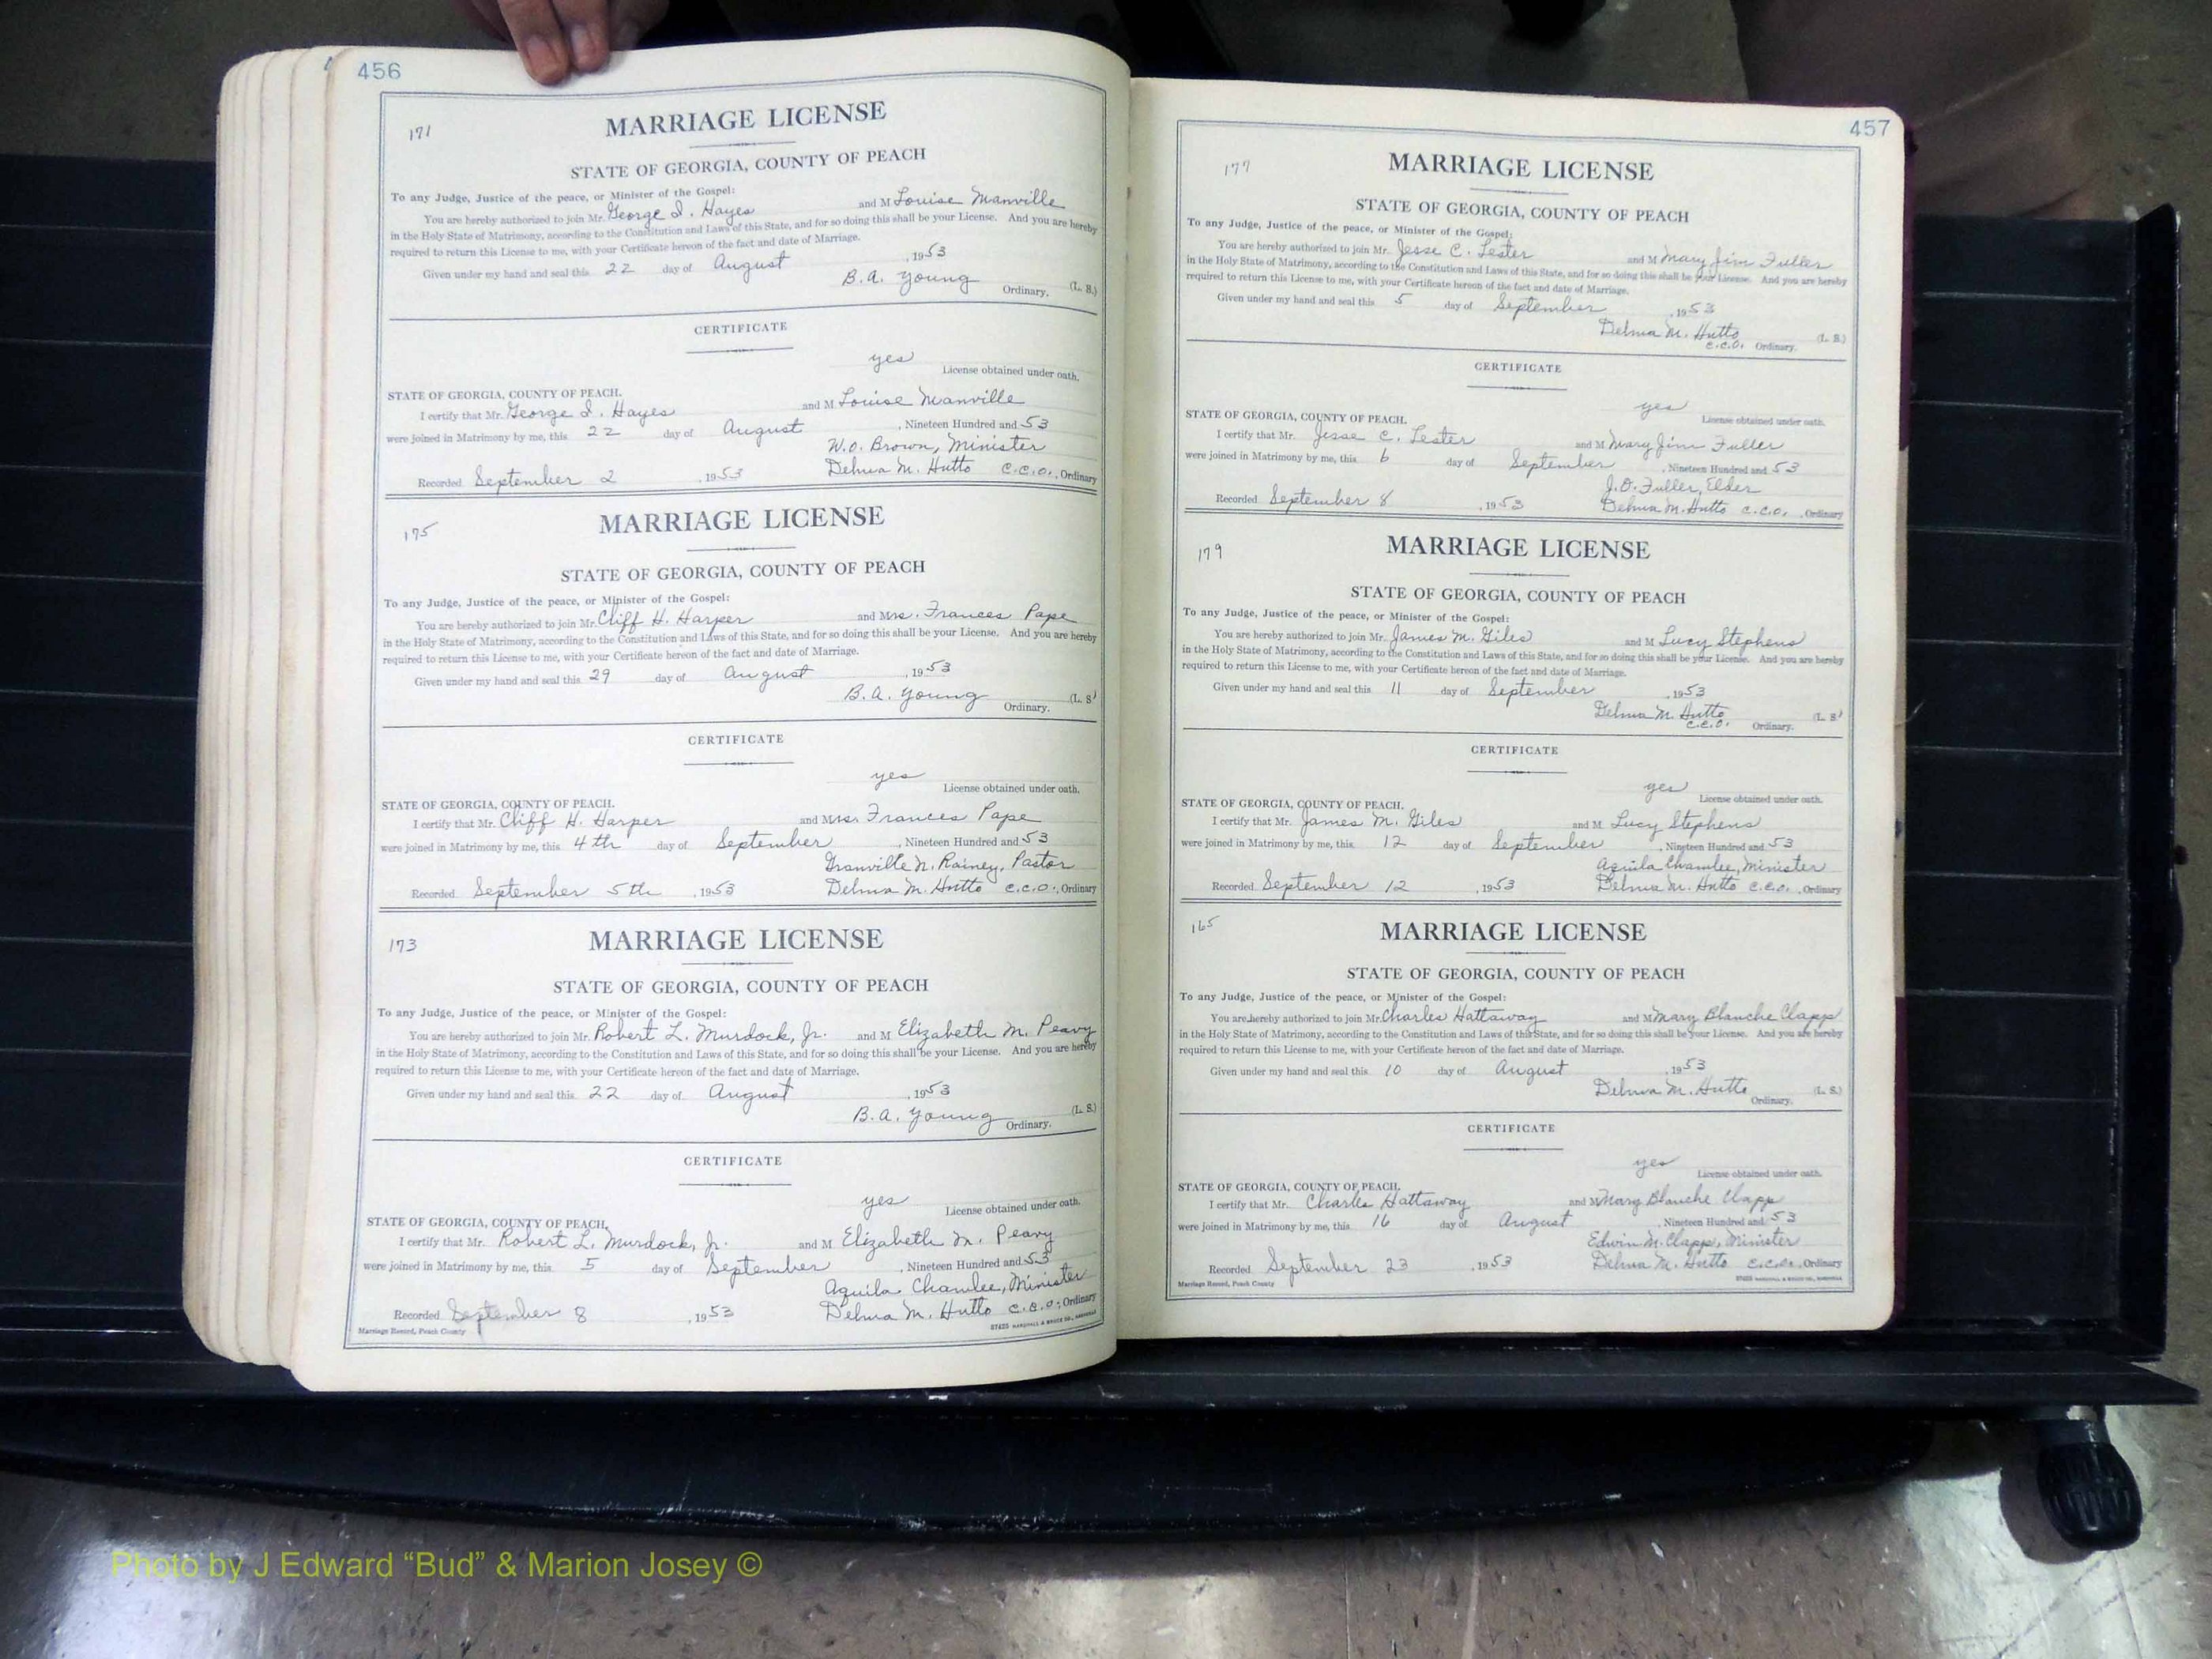 456
171
MARRIAGE LICENSE
STATE OF GEORGIA, COUNTY OF PEACH
To any Judge, Justice of the peace, or Minister of the Gospel:
You are hereby authorized to join Mr. George I. Hayes and M Louise Manville
in the Holy State of Matrimony, according to the Constitution and Laws of this State, and for so doing this shall be your License. And you are hereby
required to return this License to me, with your Certificate hereon of the fact and date of Marriage.
Given under my hand and seal this 22 day of August , 1953
B. A. Young Ordinary. (L. S.)
CERTIFICATE
yes
License obtained under oath.
STATE OF GEORGIA, COUNTY OF PEACH.
I certify that Mr. George I. Hayes and M Louise Manville
were joined in Matrimony by me, this 22 day of August , Nineteen Hundred and 53
W. O. Brown, Minister
Recorded September 2 , 1953 Delma M. Hutto C.C.O., Ordinary
175
MARRIAGE LICENSE
STATE OF GEORGIA, COUNTY OF PEACH
To any Judge, Justice of the peace, or Minister of the Gospel:
You are hereby authorized to join Mr. Cliff H. Harper and Mrs. Frances Pape
in the Holy State of Matrimony, according to the Constitution and Laws of this State, and for so doing this shall be your License. And you are hereby
required to return this License to me, with your Certificate hereon of the fact and date of Marriage.
Given under my hand and seal this 29 day of August , 1953
B. A. Young Ordinary. (L. S)
CERTIFICATE
yes
License obtained under oath.
STATE OF GEORGIA, COUNTY OF PEACH.
I certify that Mr. Cliff H. Harper and Mrs. Frances Pape
were joined in Matrimony by me, this 4th day of September , Nineteen Hundred and 53
Granville N. Rainey, Pastor
Recorded September 5th , 1953 Delma M. Hutto C.C.O., Ordinary
173
MARRIAGE LICENSE
STATE OF GEORGIA, COUNTY OF PEACH
To any Judge, Justice of the peace, or Minister of the Gospel:
You are hereby authorized to join Mr. Robert L. Murdock, Jr. and M Elizabeth M. Peavy
in the Holy State of Matrimony, according to the Constitution and Laws of this State, and for so doing this shall be your License. And you are hereby
required to return this License to me, with your Certificate hereon of the fact and date of Marriage.
Given under my hand and seal this 22 day of August , 1953
B. A. Young Ordinary. (L. S.)
CERTIFICATE
yes
License obtained under oath.
STATE OF GEORGIA, COUNTY OF PEACH.
I certify that Mr. Robert L. Murdock, Jr. and M Elizabeth M. Peavy
were joined in Matrimony by me, this 5 day of September , Nineteen Hundred and 53
Aquila Chamlee, Minister
Recorded September 8 , 1953 Delma M. Hutto C.C.O., Ordinary
Marriage Record, Peach County
457
177
MARRIAGE LICENSE
STATE OF GEORGIA, COUNTY OF PEACH
To any Judge, Justice of the peace, or Minister of the Gospel:
You are hereby authorized to join Mr. Jesse C. Lester and M Mary Jim Fuller
in the Holy State of Matrimony, according to the Constitution and Laws of this State, and for so doing this shall be your License. And you are hereby
required to return this License to me, with your Certificate hereon of the fact and date of Marriage.
Given under my hand and seal this 5 day of September , 1953
Delma M. Hutto (L. S.)
C.C.O. Ordinary.
CERTIFICATE
yes
License obtained under oath.
STATE OF GEORGIA, COUNTY OF PEACH.
I certify that Mr. Jesse C. Lester and M Mary Jim Fuller
were joined in Matrimony by me, this 6 day of September , Nineteen Hundred and 53
J. O. Fuller, Elder
Recorded September 8 , 1953 Delma M. Hutto C.C.O., Ordinary
179
MARRIAGE LICENSE
STATE OF GEORGIA, COUNTY OF PEACH
To any Judge, Justice of the peace, or Minister of the Gospel:
You are hereby authorized to join Mr. James M. Giles and M Lucy Stephens
in the Holy State of Matrimony, according to the Constitution and Laws of this State, and for so doing this shall be your License. And you are hereby
required to return this License to me, with your Certificate hereon of the fact and date of Marriage.
Given under my hand and seal this 11 day of September , 1953
Delma M. Hutto (L. S)
C.C.O. Ordinary.
CERTIFICATE
yes
License obtained under oath.
STATE OF GEORGIA, COUNTY OF PEACH.
I certify that Mr. James M. Giles and M Lucy Stephens
were joined in Matrimony by me, this 12 day of September , Nineteen Hundred and 53
Aquila Chamlee, Minister
Recorded September 12 , 1953 Delma M. Hutto C.C.O., Ordinary
165
MARRIAGE LICENSE
STATE OF GEORGIA, COUNTY OF PEACH
To any Judge, Justice of the peace, or Minister of the Gospel:
You are hereby authorized to join Mr. Charles Hattaway and M Mary Blanche Clapp
in the Holy State of Matrimony, according to the Constitution and Laws of this State, and for so doing this shall be your License. And you are hereby
required to return this License to me, with your Certificate hereon of the fact and date of Marriage.
Given under my hand and seal this 10 day of August , 1953
Delma M. Hutto (L. S.)
Ordinary.
CERTIFICATE
yes
License obtained under oath.
STATE OF GEORGIA, COUNTY OF PEACH.
I certify that Mr. Charles Hattaway and M Mary Blanche Clapp
were joined in Matrimony by me, this 16 day of August , Nineteen Hundred and 53
Edwin M. Clapp, Minister
Recorded September 23 , 1953 Delma M. Hutto C.C.O., Ordinary
Marriage Record, Peach County
Photo by J Edward “Bud” & Marion Josey ©